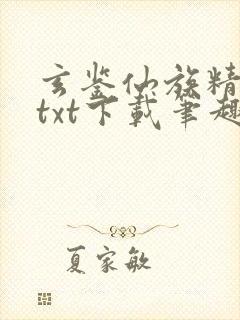 玄鉴仙族精
txt下载笔趣
夏家敏